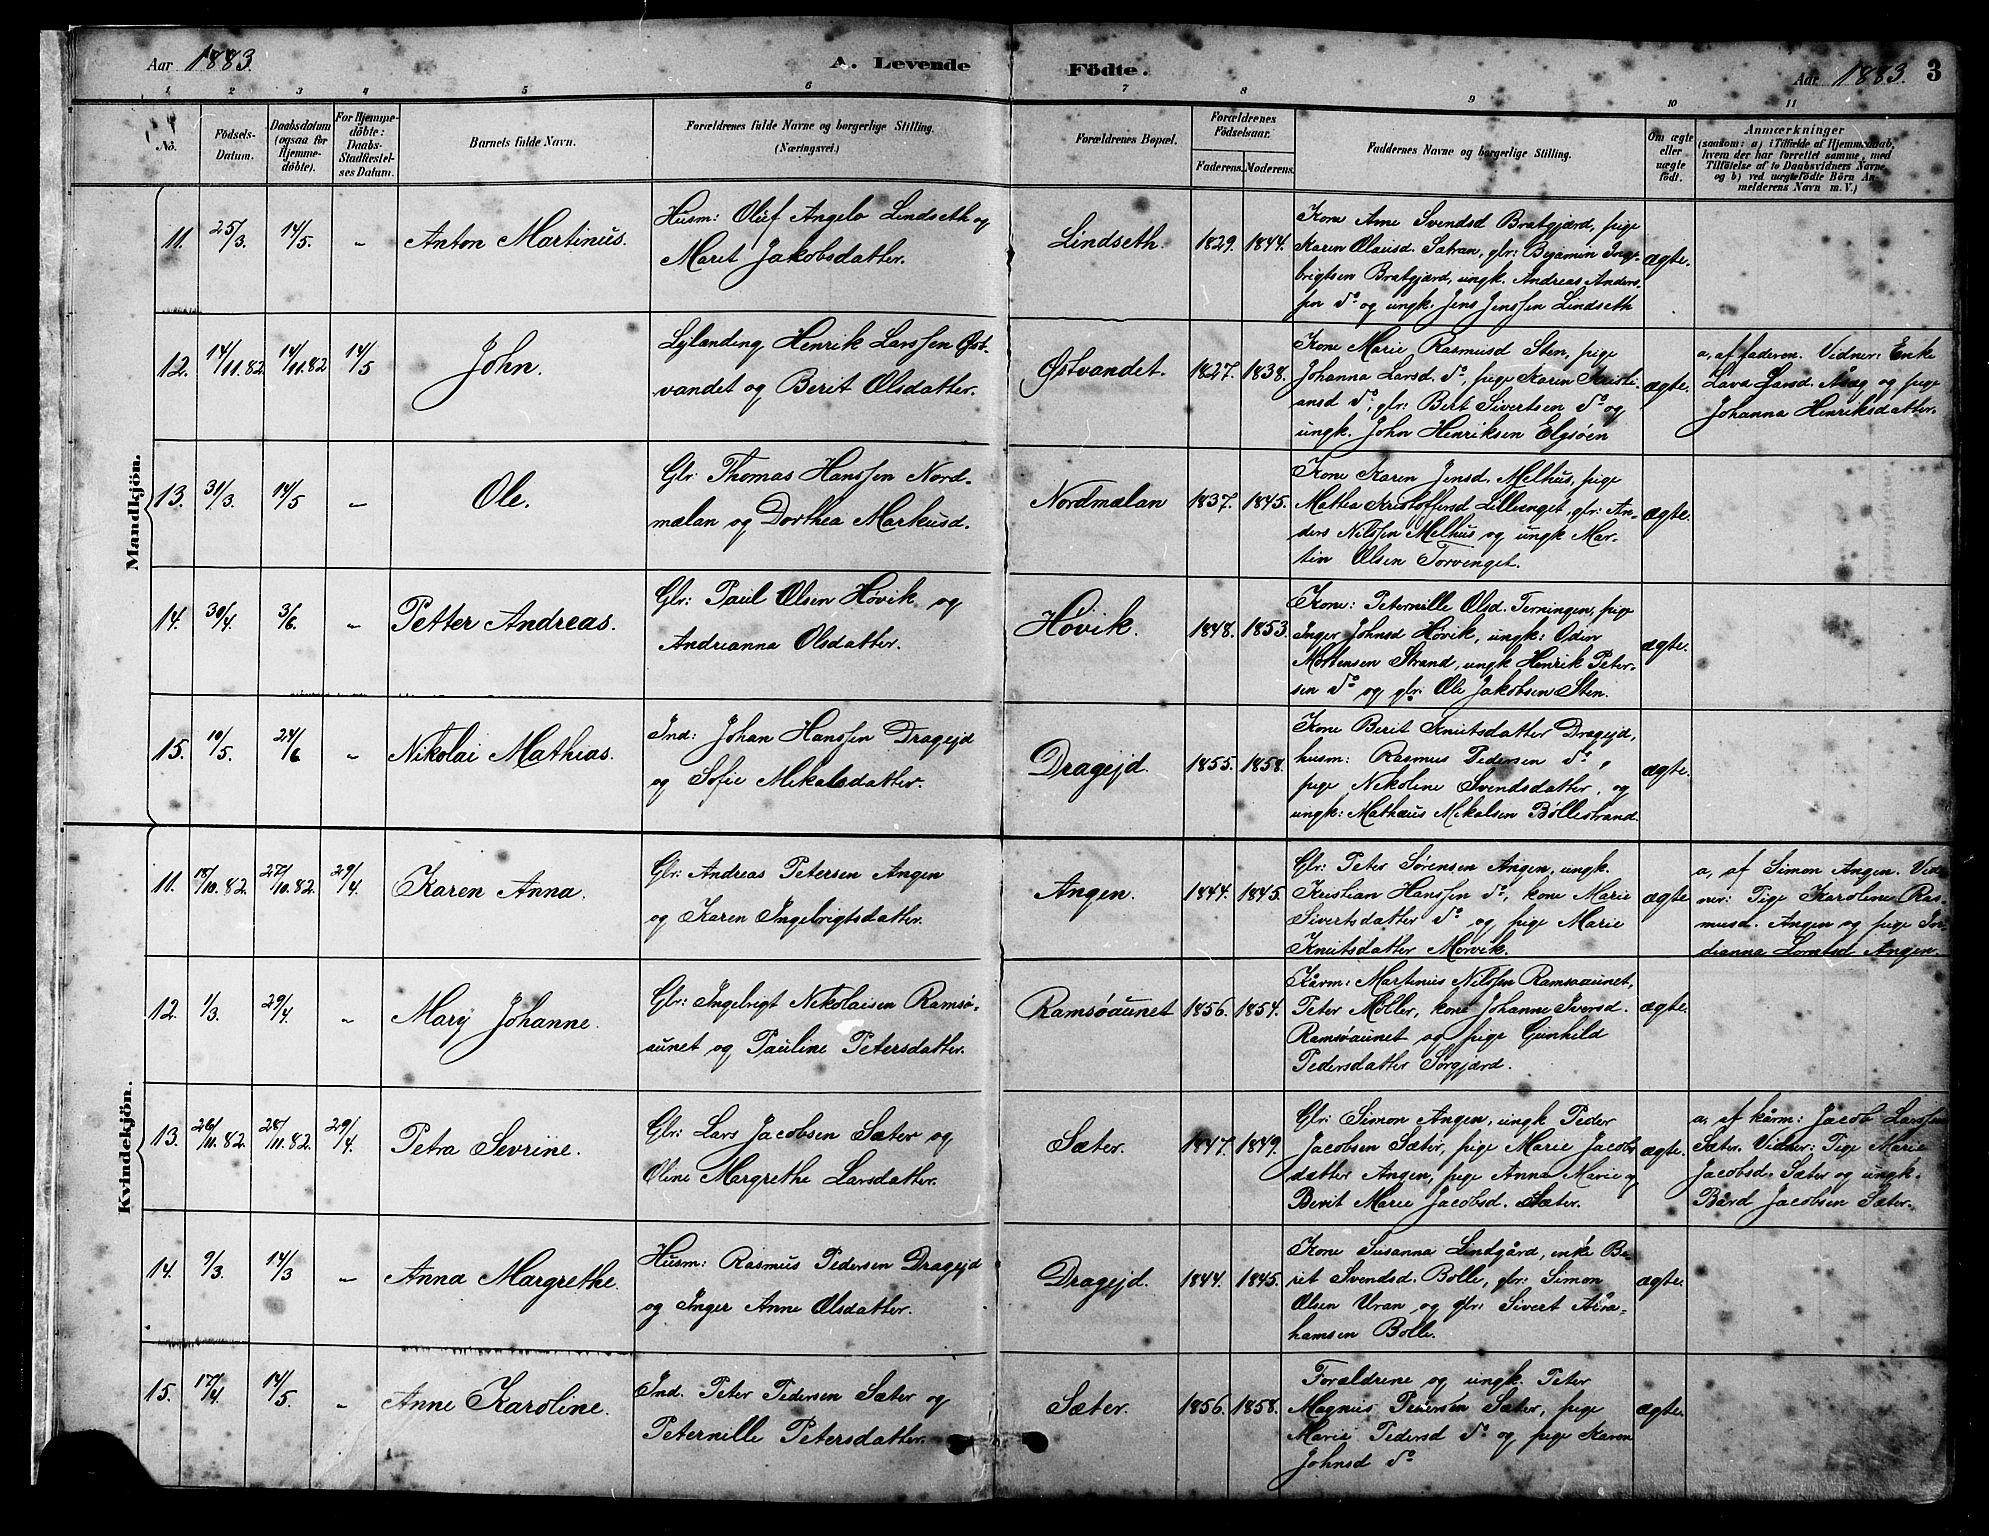 Aar 1883.
A. Levende Födte.
Aar 1883.
3
1 2 3 4 5 6 7 8 9 10 11
No.
Födsels-
Datum.
Daabsdatum
(ogsaa for
Hjemme-
döbte).
For Hjemme-
döbte:
Daabs-
Stadfæstel-
ses Datum.
Barnets fulde Navn.
Forældrenes fulde Navne og borgerlige Stilling.
(Næringsvei.)
Forældrenes Bopæl.
Forældrenes
Födselsaar.
Faderens. Moderens.
Faddernes Navne og borgerlige Stilling.
Om ægte
eller
uægte
födt.
Anmærkninger
(saasom: a) i Tilfælde af Hjemmedaab,
hvem der har forrettet samme, med
Tilföielse af to Daabsvidners Navne,
og b) ved uægtefödte Börn An-
melderens Navn m. V.)
Mandkjön.
11. 25/3. 14/5. „ Anton Martinus.
Husm: Oluf Angelo Lindseth og
Marit Jakobsdatter.
Lindseth. 1829. 1844.
Kone Arne Svendsd Bratgjærd, pige
Karen Olausd. Sætran, gbr: Bejamin Inge-
brigtsen Bratgjærd, ungk. Andreas Anders-
sen do og ungk. Jens Jenssen Lindseth
ægte.
12. 14/11.82 14/11.82 14/5 John.
Lylanding Henrik Larssen Øst-
vandet og Berit Olsdatter.
Østvandet. 1827. 1838.
Kone Marie Rasmusd Sten, pige
Johanna Larsd. do, pige Karen Kristi-
ansd do, gbr: Bert Sivertsen do og
ungk. John Henriksen Elgsøen
ægte.
a, af faderen. Vidner: Enke
Lava Larsd. Aasag og pige
Johanna Henriksdatter.
13. 31/3. 14/5. „ Ole.
Gbr: Thomas Hanssen Nord-
mælan og Dorthea Markusd.
Nordmælan 1837. 1845.
Kone Karen Jensd. Melhus, pige
Mathea Kristoffersd Lillevnget, gbr: An-
ders Nilssen Melhus og ungk Mar-
tin Olsen Torvenget.
ægte.
14. 30/4. 3/6. „ Petter Andreas.
Gbr: Paul Olsen Høvik og
Andrianna Olsdatter.
Høvik. 1848. 1853.
Kone: Peternille Olsd. Terningen, pige
Inger Johnsd Høvik, ungk: Odin
Mortensen Strand, ungk Henrik Peter-
sen do og gbr: Ole Jakobsen Sten.
ægte.
15. 10/5. 24/6 „ Nikolai Mathias.
Ind: Johan Hanssen Dragejd
og Sofie Mikalsdatter.
Dragejd. 1855. 1858.
Kone Berit Knutsdatter Dragejd,
husm: Rasmus Pedersen do,
pige Nikoline Svendsdatter, og
ungk: Mathæus Mikalsen Böllestrand.
ægte.
Kvindekjön.
11. 18/10.82. 27/10.82. 29/4. Karen Anna.
Gbr: Andreas Petersen Angen
og Karen Ingebrigtsdatter.
Angen. 1844. 1845.
Gbr: Peter Sörensen Angen, ungk.
Kristian Hanssen do, kone Marie
Sivertsdatter do og pige Marie
Knutsdatter Mørvik.
ægte
a, af Simon Angen. Vid-
ner: Pige Karoline Ras-
musd. Angen og pige In-
dianna Lorntsd Angen.
12. 1/3. 29/4. „ Mary Johanne.
Gbr: Ingebrigt Nikolaisen Ramsø-
aunet og Pauline Petersdatter.
Ramsøaunet 1856. 1854.
Kårm: Martinus Nilssen Ramsøaunet,
Peter Møller, kone Johanne Iversd.
Ramsøaunet og pige Gunhild
Pedersdatter Sørgjærd.
ægte.
13. 26/11.82. 28/11.82. 29/4. Petra Sevrine.
Gbr: Lars Jacobsen Sæter og
Oline Margrethe Larsdatter.
Sæter. 1847. 1849.
Gbr: Simon Angen, ungk Peder
Jacobsen Sæter, pige Marie Jacobs-
datter Angen, pige Anna Marie og
Berit Marie Jacobsd. Sæter.
ægte.
a, af kårm: Jacob Larssen
Sæter. Vidner: Pige Marie
Jacobsd. Sæter og ungk.
Bård Jacobsen Sæter.
14. 9/3. 14/3 „ Anna Margrethe.
Husm: Rasmus Pedersen Dragejd
og Inger Anne Olsdatter.
Dragejd. 1844. 1845.
Kone Susanna Lindgård, enke Be-
rit Svendsd. Bolle, gbr: Simon
Olsen Uran og gbr: Sivert Abra-
hamsen Bolle.
ægte.
15. 17/4. 14/5. „ Anne Karoline.
Ind. Peter Pedersen Sæter og
Peternille Petersdatter.
Sæter. 1856. 1858.
Forældrene og ungk. Peter
Magnus Pedersen Sæter, pige
Marie Pedersd do og pige Karen
Johnsd do
ægte.